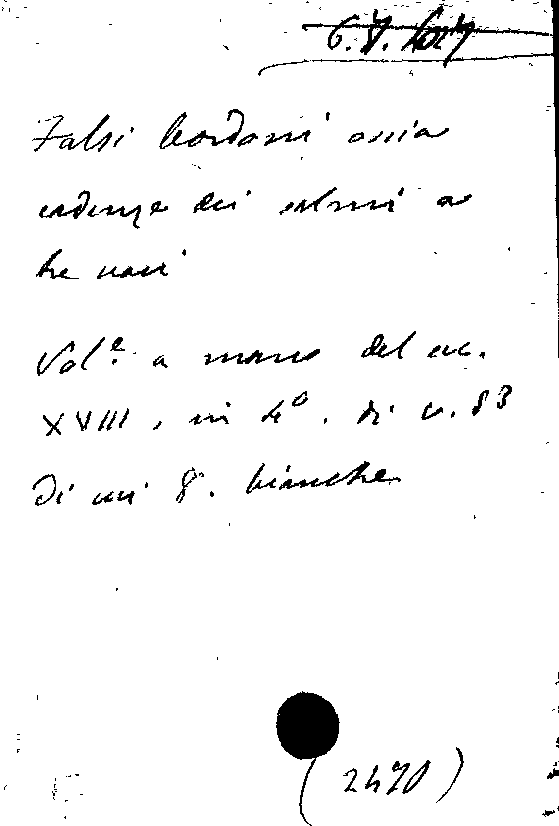 Falsi bordoni ossia
cadenze dei salmi a
tre voci
Vol.e a mano del sec.
XVIII, in 4°. di c. 83
di cui 8. bianche
(2470)